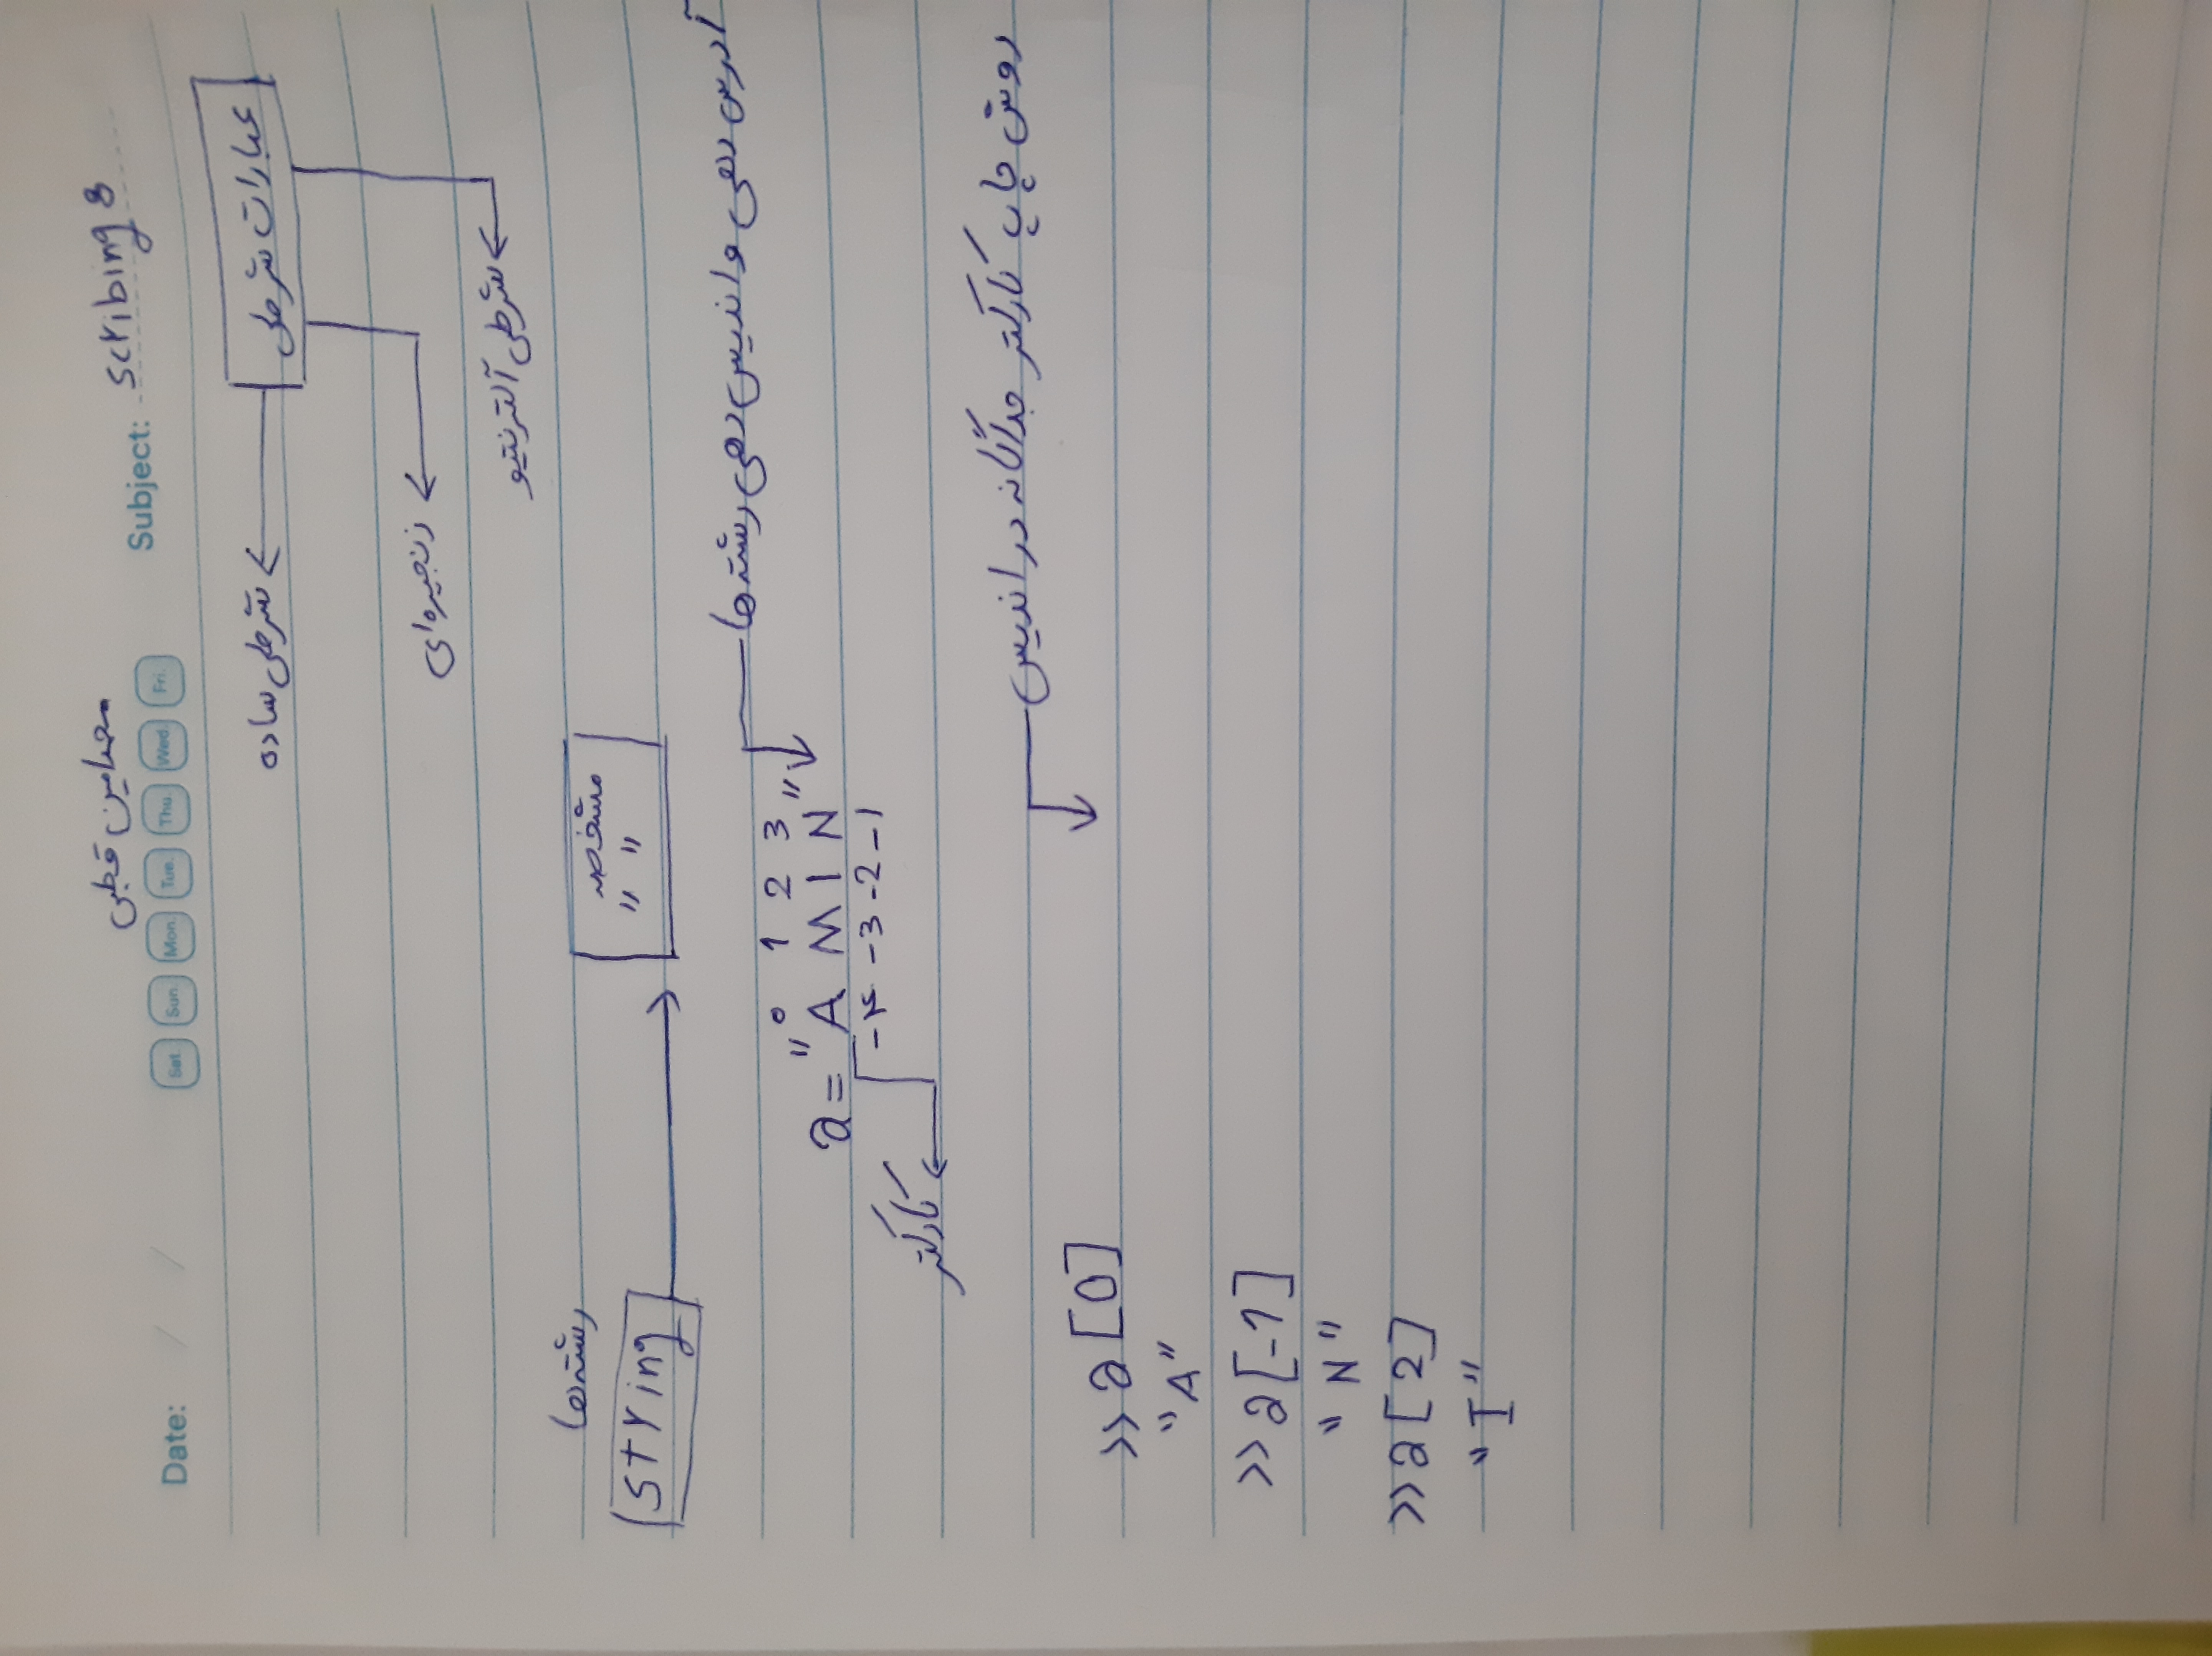 محمدامین قطبی
Date: / / Sat. Sun. Mon. Tue. Thu. Wed. Fri. Subject: scribing 8
عبارات شرطی
شرطی ساده
زنجیره‌ای
شرطی آلترنتیو
رشته‌ها
string
مشخصه
" "
آدرس دهی و اندیس دهی رشته‌ها
0 1 2 3
a = "A M I N"
-۴ -3 -2 -1
کارکتر
روش چاپ کارکتر جداگانه در اندیس
>> a [0]
"A"
>> a [-1]
"N"
>> a [2]
"I"